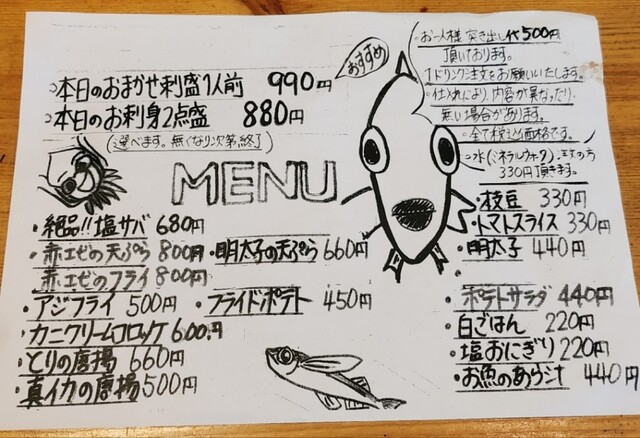 本日のおまかせ刺盛1人前 990円
本日のお刺身2点盛 880円
(選べます。無くなり次第終了)
おすすめ
・お一人様 突き出し代500円
頂いております。
1ドリンク注文をお願いいたします。
・仕入れにより、内容が異なったり、
無い場合があります。
・全て税込価格です。
・水(ミネラルウォーター)注文の方
330円頂きます。
MENU
・絶品!!塩サバ 680円
・赤エビの天ぷら 800円
・明太子の天ぷら 660円
赤エビのフライ 800円
・アジフライ 500円
・フライドポテト 450円
・カニクリームコロッケ 600円
・とりの唐揚 660円
・真イカの唐揚 500円
・枝豆 330円
・トマトスライス 330円
・明太子 440円
・ポテトサラダ 440円
・白ごはん 220円
・塩おにぎり 220円
・お魚のあら汁 440円